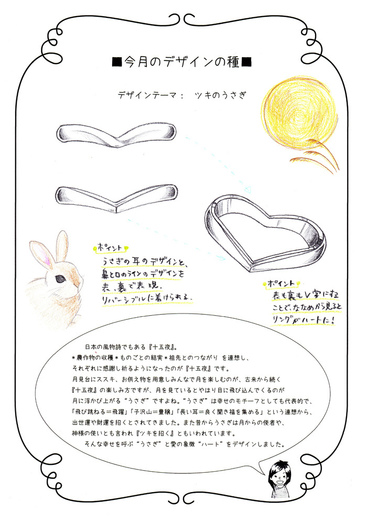 ■今月のデザインの種■
デザインテーマ： ツキのうさぎ
ポイント
うさぎの耳のデザインと、
鼻と口のラインのデザインを
表、裏で表現。
リバーシブルに着けられる。
ポイント
表も裏もV字にする
ことで、ななめから見ると
リングがハートに！
日本の風物詩でもある『十五夜』。
＊農作物の収穫＊ものごとの結実＊祖先とのつながり を連想し、
それぞれに感謝し祈るようになったのが『十五夜』です。
月見台にススキ、お供え物を用意しみんなで月を楽しむのが、古来から続く
『十五夜』の楽しみ方ですが、月を見ているとやはり目に飛び込んでくるのが
月に浮かび上がる“うさぎ”ですよね。“うさぎ”は幸せのモチーフとしても代表的で、
「飛び跳ねる＝飛躍」「子沢山＝豊穣」「長い耳＝良く聞き福を集める」という連想から、
出世運や財運を招くとされてきました。また昔からうさぎは月からの使者や、
神様の使いとも言われ『ツキを招く』ともいわれています。
そんな幸せを呼ぶ“うさぎ”と愛の象徴“ハート”をデザインしました。